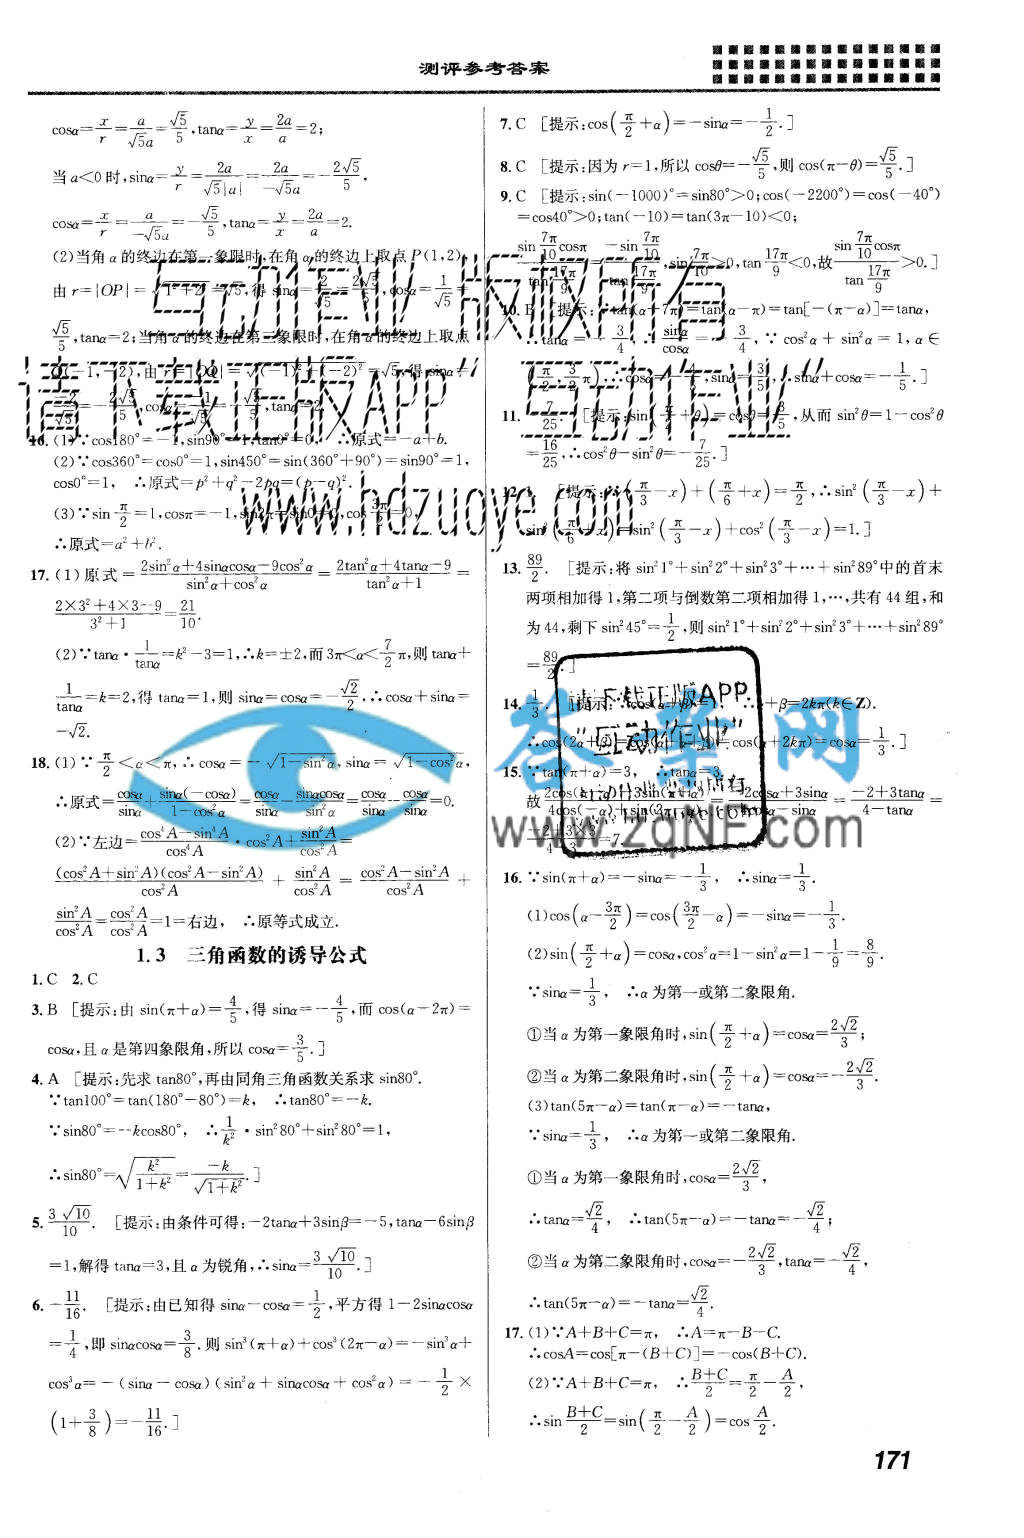 测评参考答案
cosα=x/r=a/(√5a)=√5/5,tanα=y/x=2a/a=2;
当a<0时,sinα=y/r=2a/(√5|a|)=2a/(-√5a)=-2√5/5,
cosα=x/r=a/(-√5a)=-√5/5,tanα=y/x=2a/a=2.
(2)当角α的终边在第一象限时,在角α的终边上取点P(1,2),
由r=|OP|=√(1²+2²)=√5,得sinα=2/√5=2√5/5,cosα=1/√5=
√5/5,tanα=2;当角α的终边在第三象限时,在角α的终边上取点
Q(-1,-2),由r=|OQ|=√((-1)²+(-2)²)=√5,得sinα=
-2/√5=-2√5/5,cosα=-1/√5=-√5/5,tanα=2.
16.(1)∵cos180°=-1,sin90°=1,tan0°=0,∴原式=-a+b.
(2)∵cos360°=cos0°=1,sin450°=sin(360°+90°)=sin90°=1,
cos0°=1, ∴原式=p²+q²-2pq=(p-q)².
(3)∵sin π/2=1,cosπ=-1,sin2π=sin0=0,cos 3π/2=0,
∴原式=a²+b².
17.(1)原式=(2sin²α+4sinαcosα-9cos²α)/(sin²α+cos²α)=(2tan²α+4tanα-9)/(tan²α+1)=
(2×3²+4×3-9)/(3²+1)=21/10.
(2)∵tanα·1/tanα=k²-3=1,∴k=±2,而3π<α<7/2π,则tanα+
1/tanα=k=2,得tanα=1,则sinα=cosα=-√2/2,∴cosα+sinα=
-√2.
18.(1)∵π/2<α<π,∴cosα=-√(1-sin²α),sinα=√(1-cos²α),
∴原式=cosα/sinα+sinα(-cosα)/(1-cos²α)=cosα/sinα-sinαcosα/sin²α=cosα/sinα-cosα/sinα=0.
(2)∵左边=(cos⁴A-sin⁴A)/cos⁴A·cos²A+sin²A/cos²A=
(cos²A+sin²A)(cos²A-sin²A)/cos²A+sin²A/cos²A=(cos²A-sin²A)/cos²A+
sin²A/cos²A=cos²A/cos²A=1=右边, ∴原等式成立.
1.3 三角函数的诱导公式
1.C 2.C
3.B [提示:由sin(π+α)=4/5,得sinα=-4/5,而cos(α-2π)=
cosα,且α是第四象限角,所以cosα=3/5.]
4.A [提示:先求tan80°,再由同角三角函数关系求sin80°.
∵tan100°=tan(180°-80°)=k, ∴tan80°=-k.
∵sin80°=-kcos80°, ∴1/k²·sin²80°+sin²80°=1,
∴sin80°=√(k²/(1+k²))=-k/√(1+k²).]
5.3√10/10. [提示:由条件可得:-2tanα+3sinβ=-5,tanα-6sinβ
=1,解得tanα=3,且α为锐角,∴sinα=3√10/10.]
6.-11/16. [提示:由已知得sinα-cosα=1/2,平方得1-2sinαcosα
=1/4,即sinαcosα=3/8.则sin³(π+α)+cos³(2π-α)=-sin³α+
cos³α=-(sinα-cosα)(sin²α+sinαcosα+cos²α)=-1/2×
(1+3/8)=-11/16.]
7.C [提示:cos(π/2+α)=-sinα=-1/2.]
8.C [提示:因为r=1,所以cosθ=-√5/5,则cos(π-θ)=√5/5.]
9.C [提示:sin(-1000)°=sin80°>0;cos(-2200°)=cos(-40°)
=cos40°>0;tan(-10)=tan(3π-10)<0;
sin 7π/10 cosπ/tan 17π/9=-sin 7π/10/tan 17π/9,sin 7π/10>0,tan 17π/9<0,故sin 7π/10 cosπ/tan 17π/9>0.]
10.B [提示:∵tan(α-7π)=tan(α-π)=tan[-(π-α)]=tanα,
∴tanα=-3/4,∴sinα/cosα=-3/4,∵cos²α+sin²α=1,α∈
(π/2,3/2π),∴cosα=-4/5,sinα=3/5,∴sinα+cosα=-1/5.]
11.-7/25. [提示:sin(π/2+θ)=cosθ=3/5,从而sin²θ=1-cos²θ
=16/25,∴cos²θ-sin²θ=-7/25.]
12.1 [提示:∵(π/3-x)+(π/6+x)=π/2,∴sin²(π/3-x)+
sin²(π/6+x)=sin²(π/3-x)+cos²(π/3-x)=1.]
13.89/2. [提示:将sin²1°+sin²2°+sin²3°+…+sin²89°中的首末
两项相加得1,第二项与倒数第二项相加得1,…,共有44组,和
为44,剩下sin²45°=1/2,则sin²1°+sin²2°+sin²3°+…+sin²89°
=89/2.]
14.1/3. [提示:∵cos(α+β)=1, ∴α+β=2kπ(k∈Z).
∴cos(2α+β)=cos(α+α+β)=cos(α+2kπ)=cosα=1/3.]
15.∵tan(π+α)=3, ∴tanα=3.
=(-2cosα+3sinα)/(4cosα-sinα)=(-2+3tanα)/(4-tanα)=
(-2+3×3)/(4-3)=7.
16.∵sin(π+α)=-sinα=-1/3, ∴sinα=1/3.
(1)cos(α-3π/2)=cos(3π/2-α)=-sinα=-1/3.
(2)sin(π/2+α)=cosα,cos²α=1-sin²α=1-1/9=8/9.
∵sinα=1/3, ∴α为第一或第二象限角.
①当α为第一象限角时,sin(π/2+α)=cosα=2√2/3;
②当α为第二象限角时,sin(π/2+α)=cosα=-2√2/3.
(3)tan(5π-α)=tan(π-α)=-tanα,
∵sinα=1/3, ∴α为第一或第二象限角.
①当α为第一象限角时,cosα=2√2/3,
∴tanα=√2/4, ∴tan(5π-α)=-tanα=-√2/4;
②当α为第二象限角时,cosα=-2√2/3,tanα=-√2/4,
∴tan(5π-α)=-tanα=√2/4.
17.(1)∵A+B+C=π, ∴A=π-B-C.
∴cosA=cos[π-(B+C)]=-cos(B+C).
(2)∵A+B+C=π, ∴(B+C)/2=π/2-A/2,
∴sin (B+C)/2=sin(π/2-A/2)=cos A/2.
171
“互动作业”版权所有
请下载正版APP“互动作业”
www.hdzuoye.com
答案网
www.zqNF.com
请下载正版APP
“互动作业”